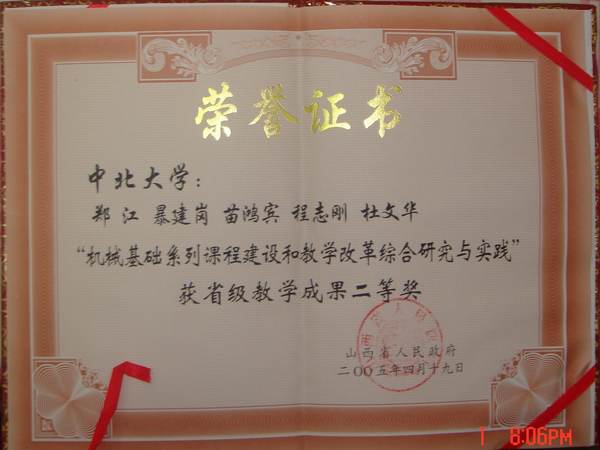 荣誉证书
中北大学：
郑江 暴建岗 苗鸿宾 程志刚 杜文华
“机械基础系列课程建设和教学改革综合研究与实践”
获省级教学成果二等奖
山西省人民政府
二〇〇五年四月十九日
1 8:06PM